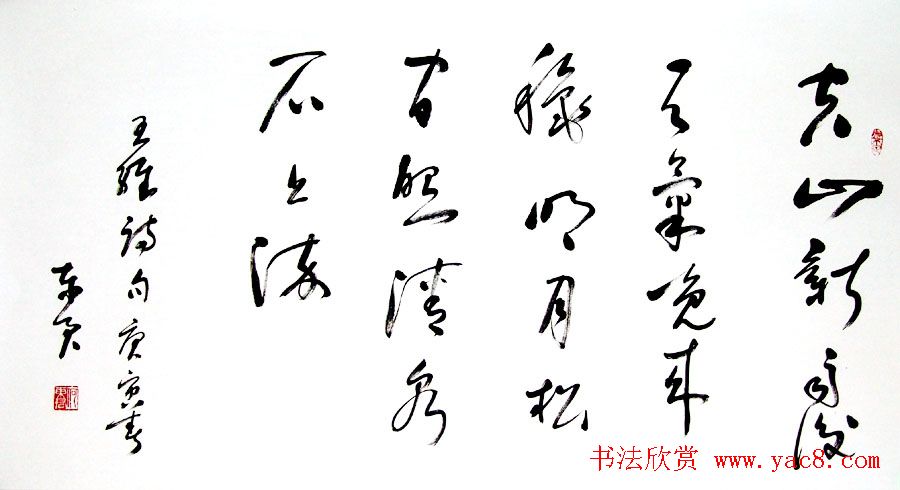 空山新雨後
天氣晚来
秋明月松
間照清泉
石上流
王維詩句庚寅春
书法欣赏 www.yac8.com